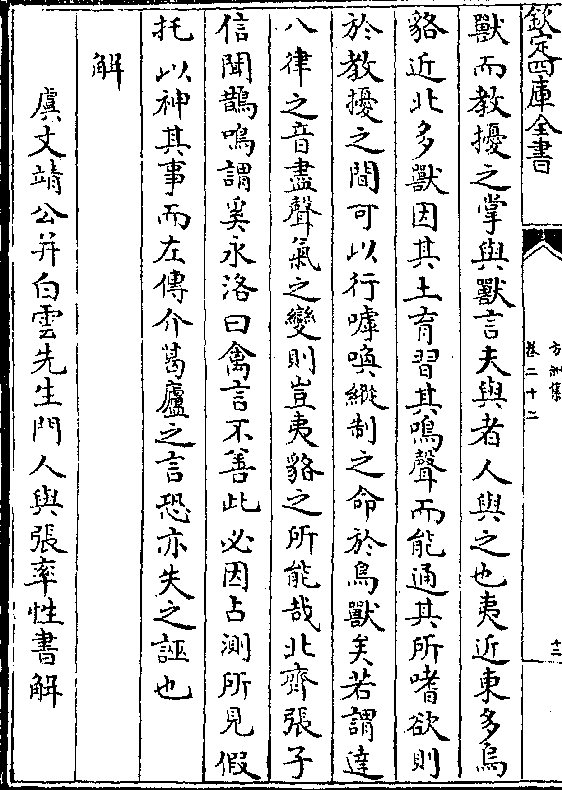 欽定四庫全書
方洲集
卷二十二
十二
獸而教擾之掌與獸言夫與者人與之也夷近東多鳥
貉近北多獸因其土育習其鳴聲而能通其所嗜欲則
於教擾之間可以行嘑喚縱制之命於鳥獸矣若謂達
八律之音盡聲氣之變則豈夷貉之所能哉北齊張子
信聞鵲鳴謂奚永洛曰禽言不善此必因占測所見假
托以神其事而左傳介葛廬之言恐亦失之誣也
解
虞文靖公并白雲先生門人與張率性書解